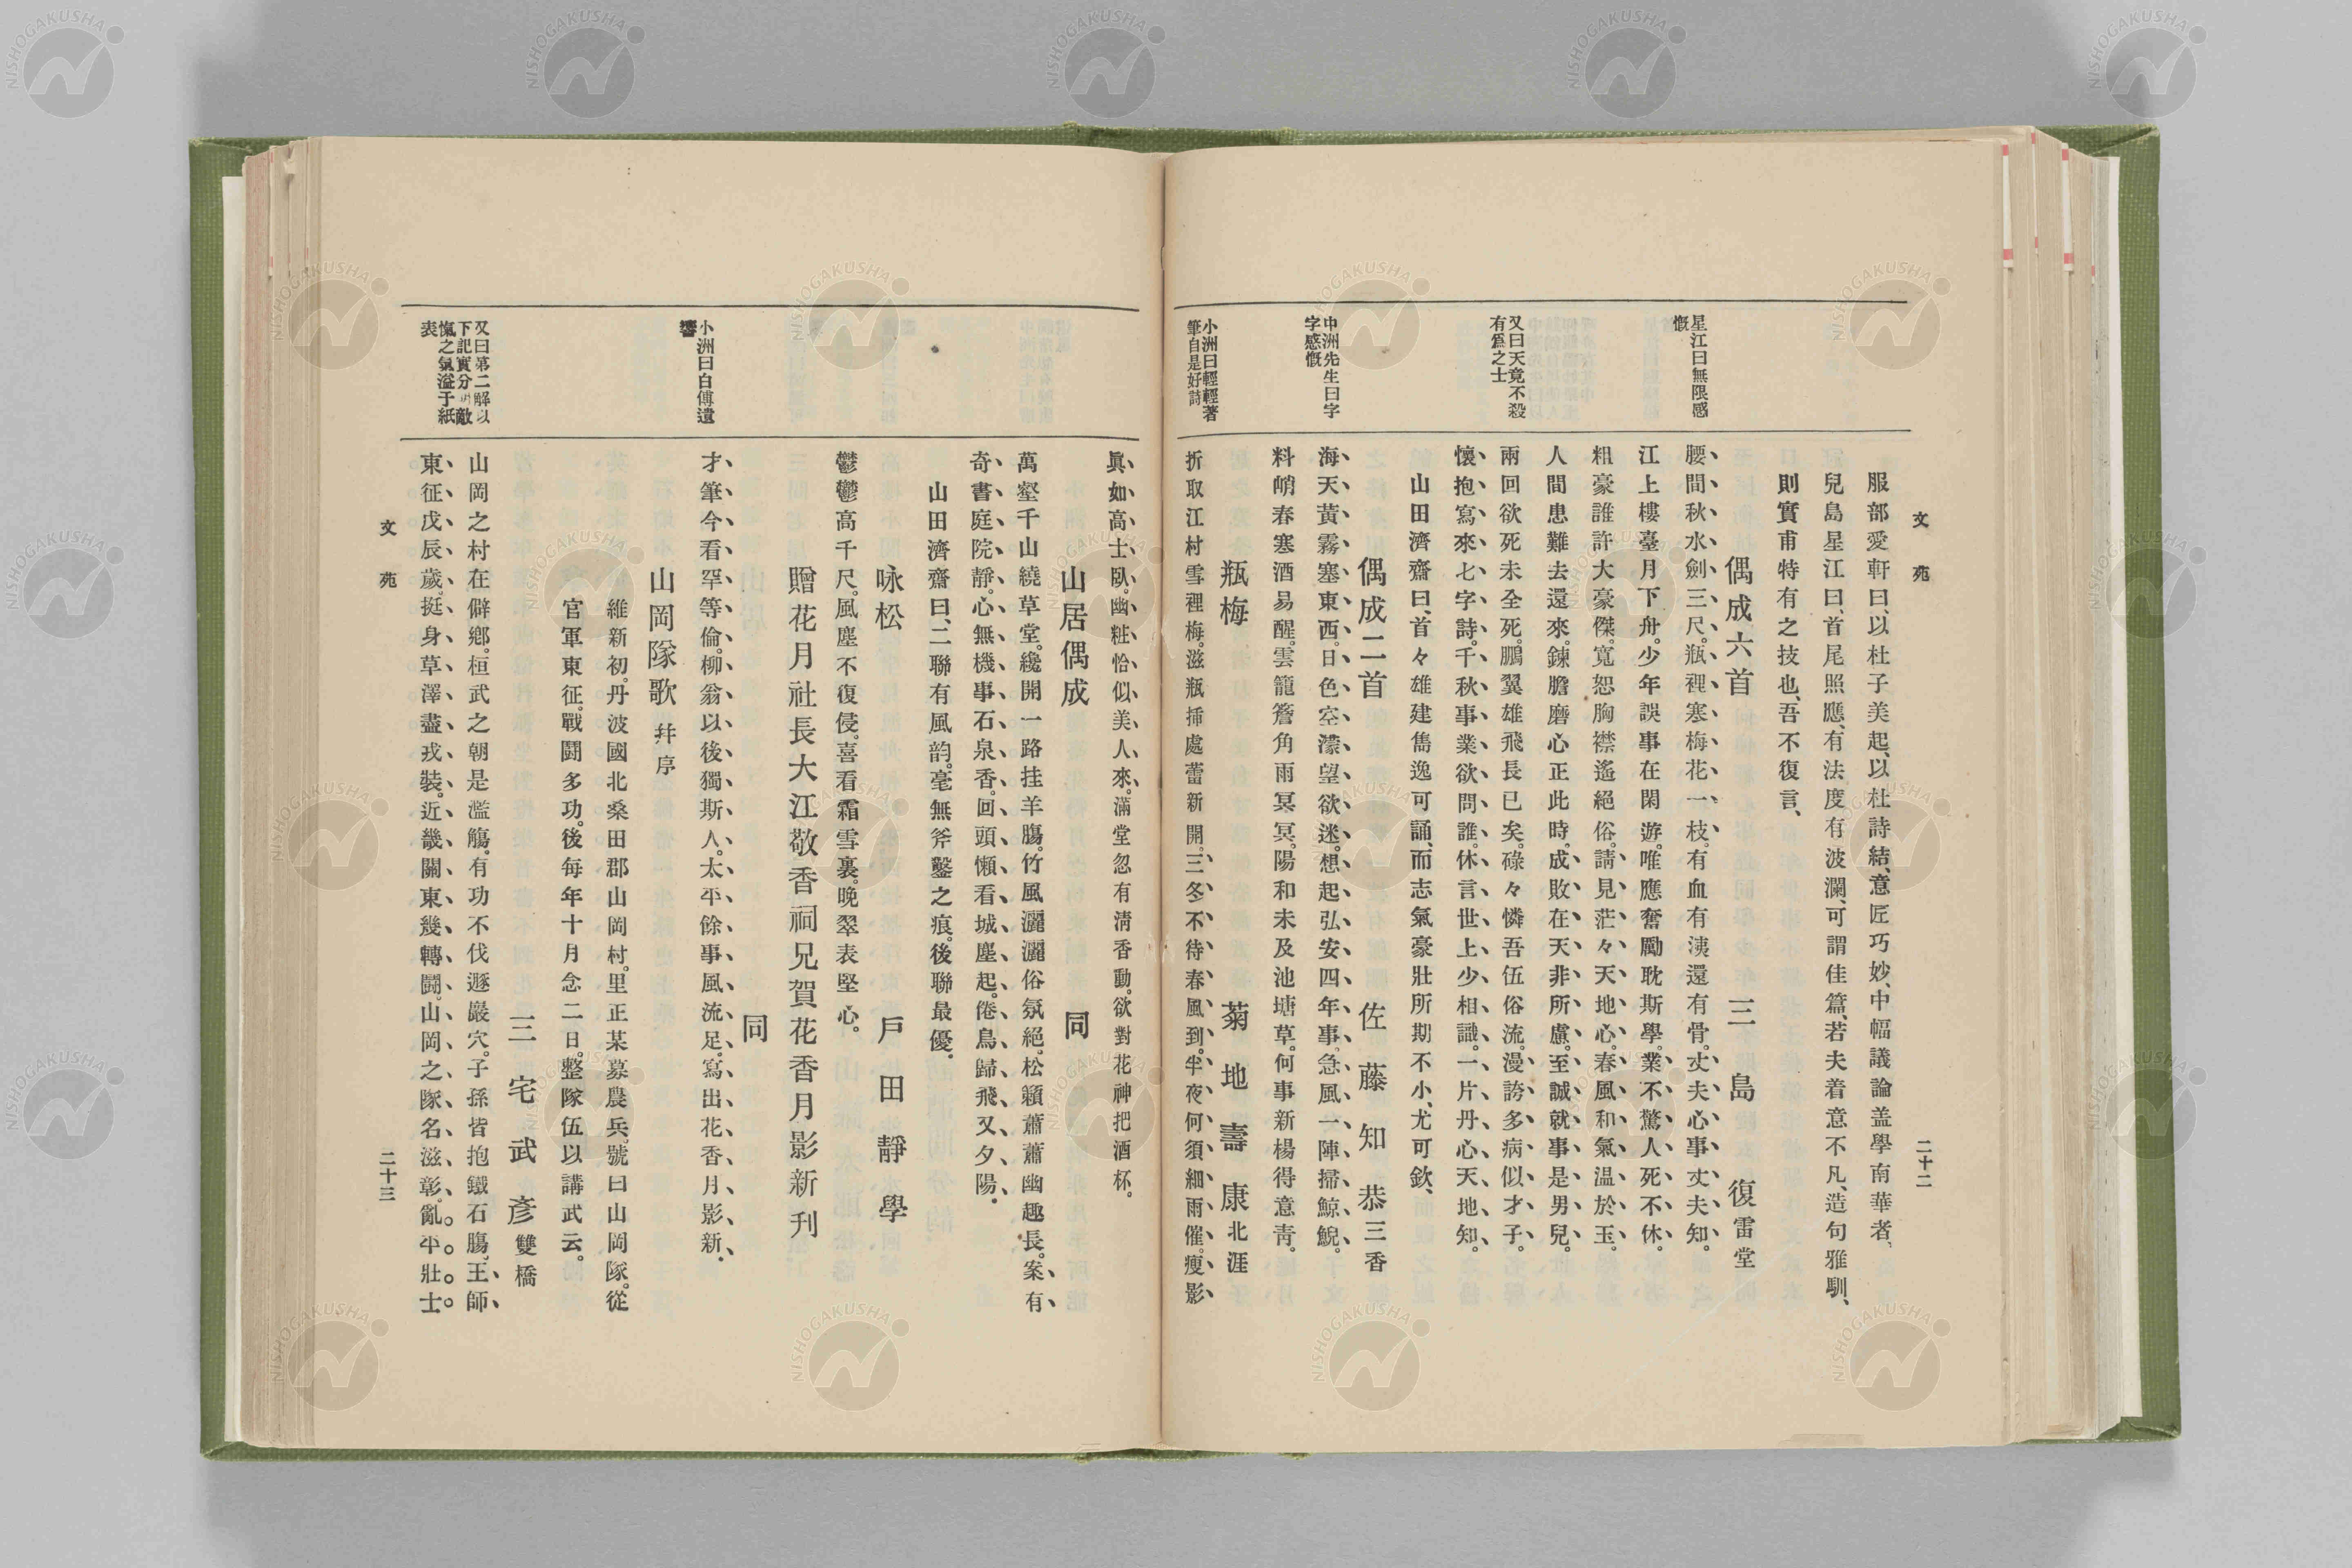 文苑
二十二
服部愛軒曰、以杜子美起、以杜詩結、意匠巧妙、中幅議論盖學南華者、
兒島星江曰、首尾照應、有法度有波瀾、可謂佳篇、若夫着意不凡、造句雅馴、
則實甫特有之技也、吾不復言、
偶成六首
三島復雷堂
星江曰無限感
慨
腰間秋水劍三尺。瓶裡寒梅花一枝。有血有洟還有骨。丈夫心事丈夫知。
江上樓臺月下舟。少年誤事在閑遊。唯應奮勵耽斯學。業不驚人死不休。
粗豪誰許大豪傑。寬恕胸襟遙絕俗。請見茫々天地心。春風和氣溫於玉。
人間患難去還來。鍊膽磨心正此時。成敗在天非所慮。至誠就事是男兒。
又曰天竟不殺
有爲之士
兩回欲死未全死。鵬翼雄飛長已矣。碌々憐吾伍俗流。漫誇多病似才子。
懷抱寫來七字詩。千秋事業欲問誰。休言世上少相識。一片丹心天地知。
山田濟齋曰、首々雄建雋逸可誦、而志氣豪壯所期不小、尤可欽、
偶成二首
佐藤知恭三香
中洲先生曰字
字感慨
海天黃霧塞東西。日色空濛望欲迷。想起弘安四年事。急風一陣掃鯨鯢。
料峭春寒酒易醒。雲籠簷角雨冥冥。陽和未及池塘草。何事新楊得意靑。
瓶梅
菊地壽康北涯
小洲曰輕輕著
筆自是好詩
折取江村雪裡梅。滋瓶揷處蕾新開。三冬不待春風到。半夜何須細雨催。瘦影
眞如高士臥。幽粧恰似美人來。滿堂忽有淸香動。欲對花神把酒杯。
山居偶成
同
萬壑千山繞草堂。纔開一路挂羊膓。竹風灑灑俗氛絕。松籟蕭蕭幽趣長。案有
奇書庭院靜。心無機事石泉香。回頭懶看城塵起。倦鳥歸飛又夕陽。
山田濟齋曰、二聯有風韵。毫無斧鑿之痕。後聯最優。
咏松
戶田靜學
鬱鬱高千尺。風塵不復侵。喜看霜雪裏。晚翠表堅心。
贈花月社長大江敬香祠兄賀花香月影新刋
同
小洲曰白傅遺
響
才筆今看罕等倫。柳翁以後獨斯人。太平餘事風流足。寫出花香月影新。
山岡隊歌 幷序
維新初。丹波國北桑田郡山岡村。里正某募農兵。號曰山岡隊。從
官軍東征。戰鬪多功。後每年十月念二日。整隊伍以講武云。
三宅武彥雙橋
又曰第二解以
下記實分明敵
愾之氣溢于紙
表
山岡之村在僻鄕。桓武之朝是濫觴。有功不伐遯巖穴。子孫皆抱鐵石膓。王師
東征戊辰歲。挺身草澤盡戎裝。近畿關東幾轉鬪。山岡之隊名滋彰。亂平壯士
文苑
二十三